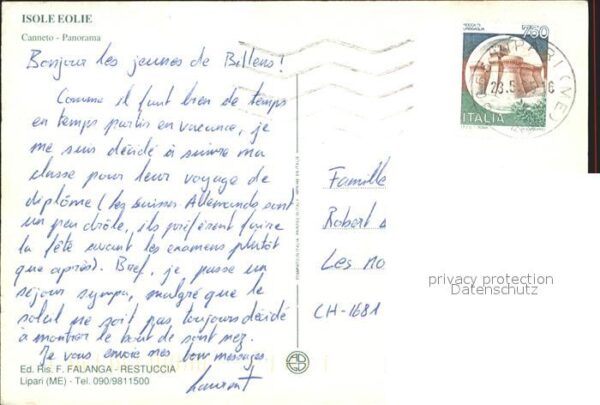 ISOLE EOLIE
Canneto - Panorama
Bonjour les jeunes de Billens!
Comme il faut bien de temps
en temps partir en vacance, je
me suis décidé à suivre ma
classe pour leur voyage de
diplôme (les Suisses-Allemands sont
un peu drôle, ils préfèrent faire
la fête avant les examens plutôt
que après). Bref, je passe un
séjour sympa, malgré que le
soleil ne soit pas toujours décidé
à montrer le bout de sont nez.
Je vous envoie mes bons messages.
Laurent
Ed. Ris. F. FALANGA - RESTUCCIA
Lipari (ME) - Tel. 090/9811500
750
ITALIA
LIPARI (ME)
23.5
Famille
Robert
Les
CH-1681
privacy protection
Datenschutz